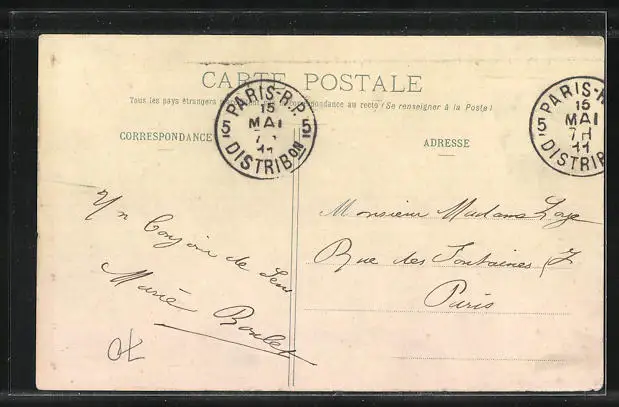 CARTE POSTALE
Tous les pays étrangers correspondance au recto (Se renseigner à la Poste)
CORRESPONDANCE
PARIS-R.P.
5 15 5
MAI
7 H
11
DISTRIBON
ADRESSE
PARIS-R
15
5 MAI
7 H
11
DISTRIB
Un Bonjour de
Marie Boulet
Monsieur Madame
Rue des Fontaines 7
Paris